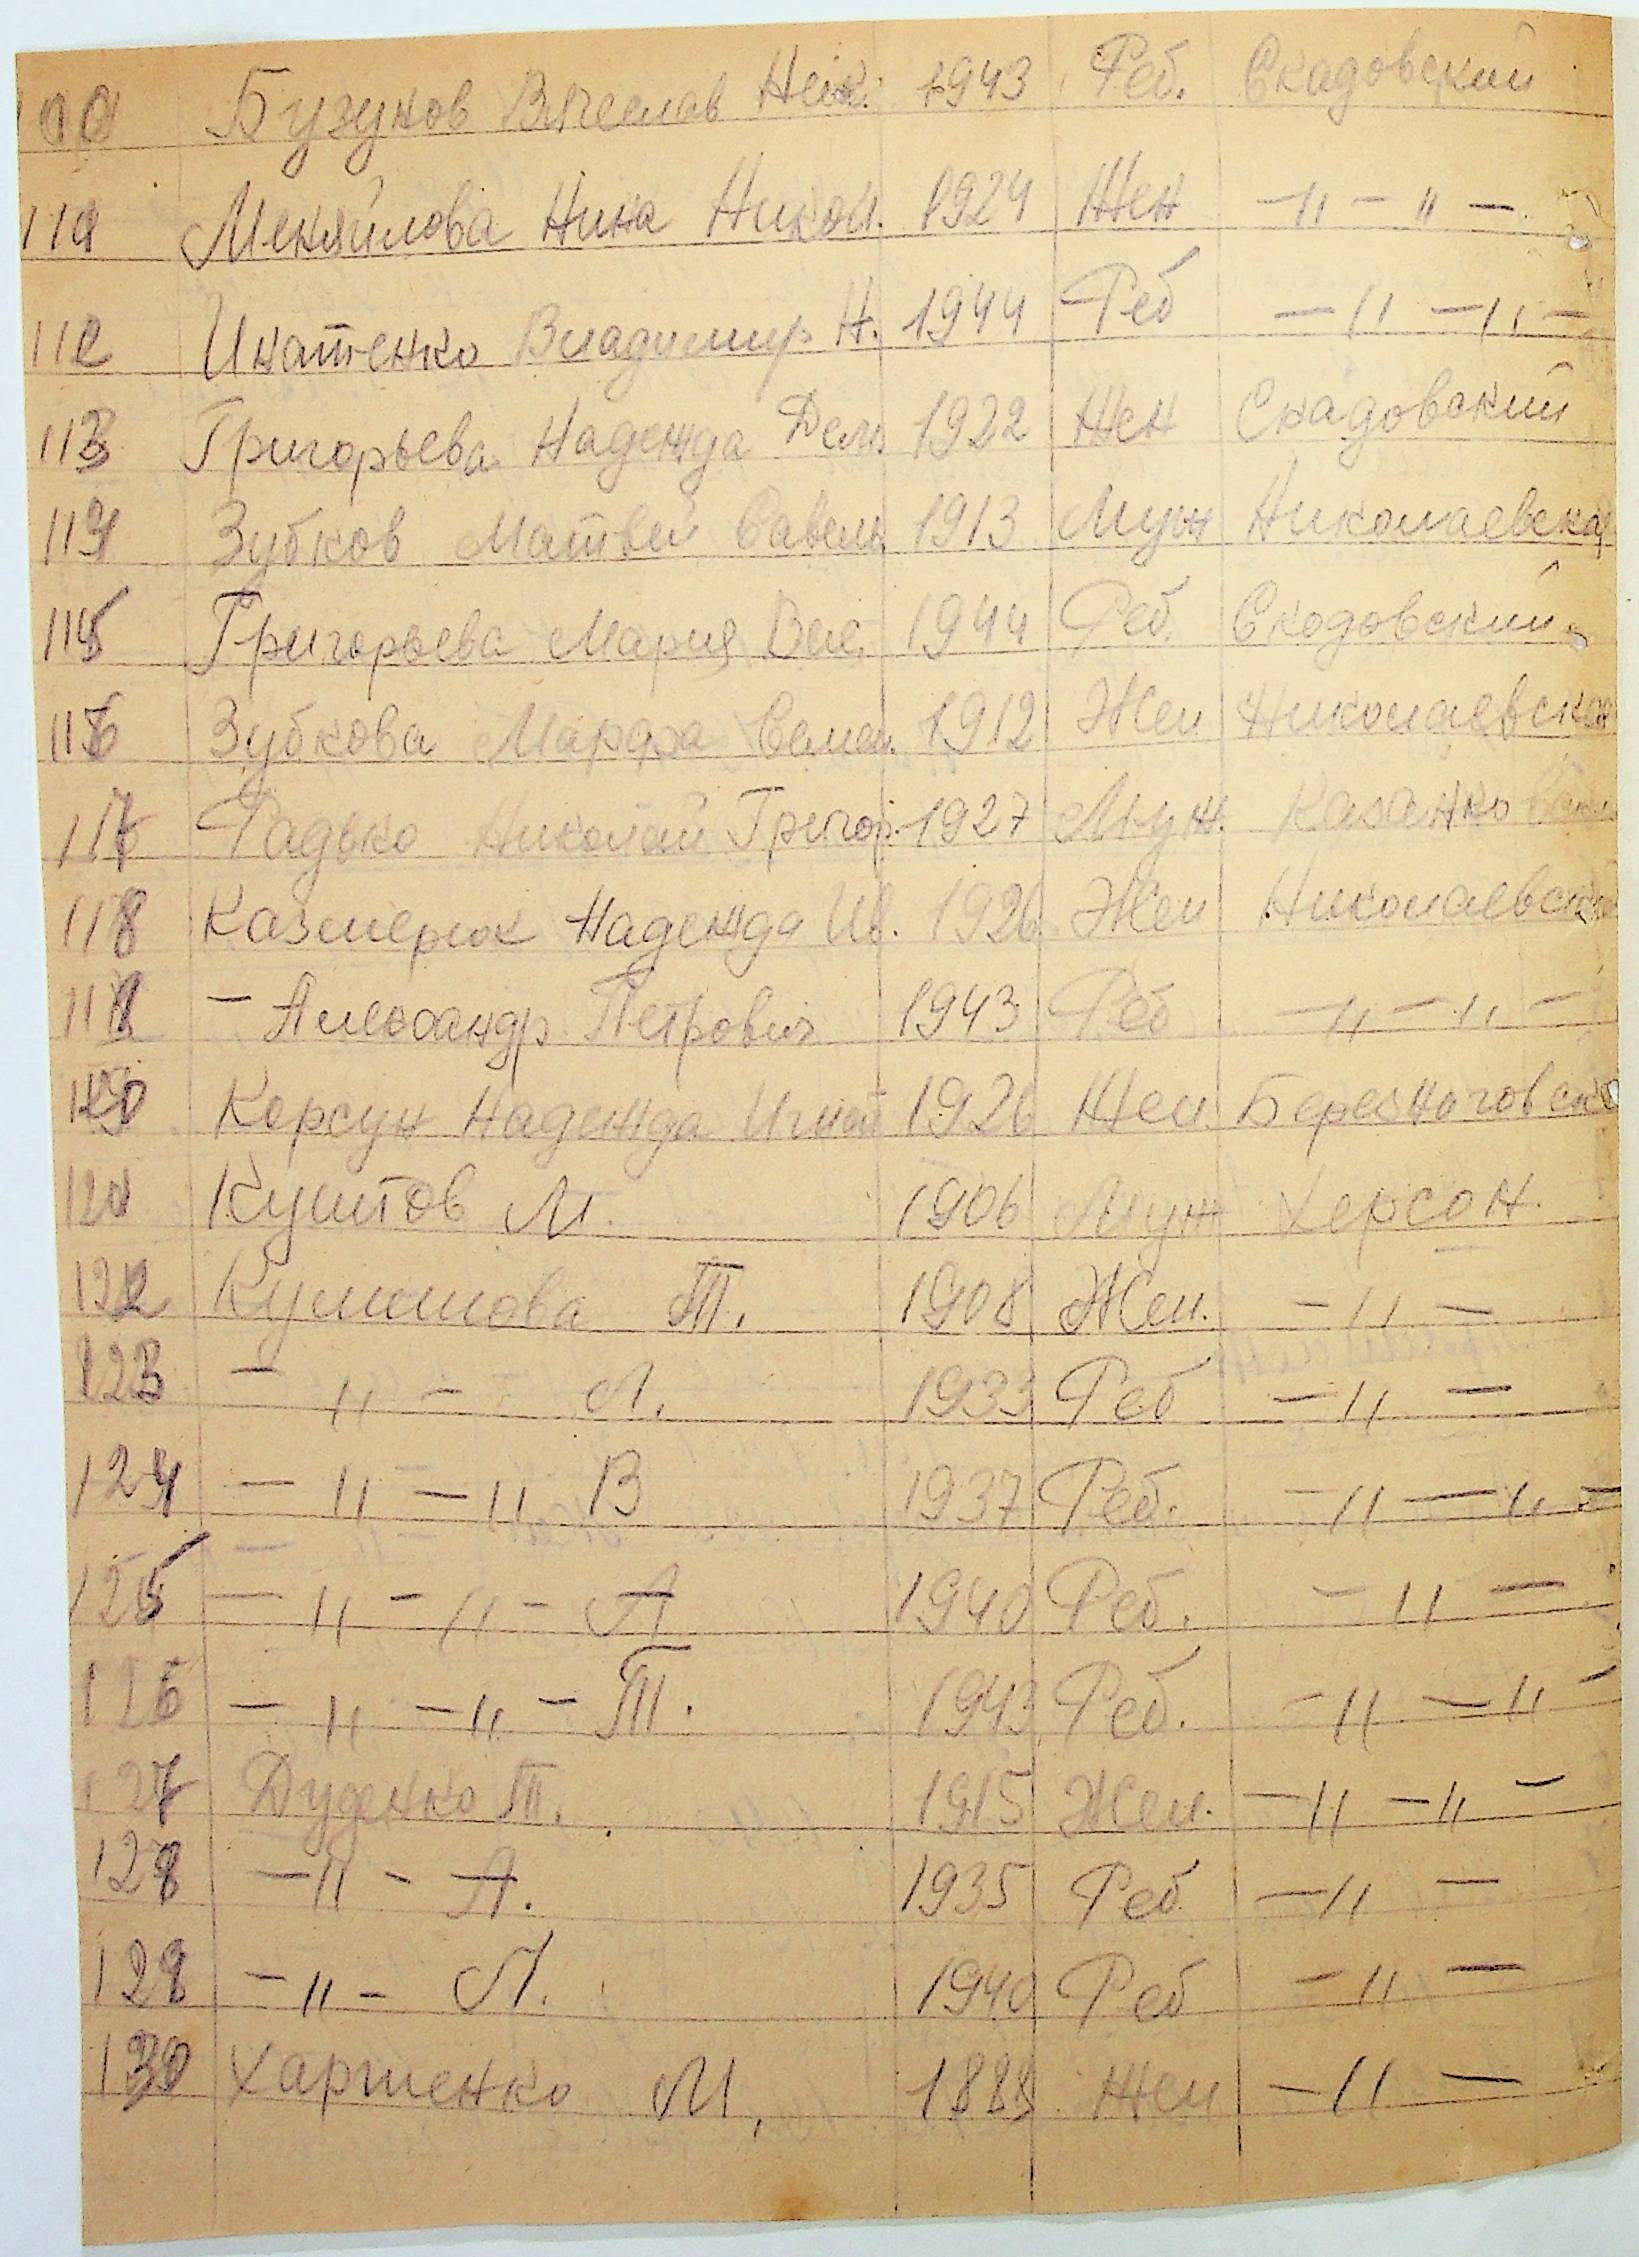 Бузунов Вячеслав Ник. 1943 Реб. Скадовский
Меняйлова Нина Никол. 1924 Жен -"-"-
112 Игнатенко Владимир Н. 1944 Реб -"-"-
113 Григорьева Надежда 1922 Жен Скадовский
114 Зубков Матвей Савель 1913 Муж Николаевская
115 Григорьева Мария 1944 Реб. Скодовский
116 Зубкова Марфа Семен. 1912 Жен Николаевская
117 Радько Николай Григор. 1927 Муж.
118 Казмерюк Надежда Ив. 1926 Жен Николаевск
- Александр Петрович 1943 Реб -"-"-
120 Корсун Надежда Игнат 1926 Жен. Березноговско
121 Куштов М. 1906 Муж Херсон.
122 Т. 1908 Жен. -"-
123 -"- Л. 1933 Реб -"-
124 -"-" В 1937 Реб. -"-"-
125 -"-"- А 1940 Реб. -"-
126 -"-"- Т. 1943 Реб. -"-"-
127 Дуденко Т. 1915 Жен. -"-"-
128 -"- А. 1935 Реб -"-
-"- Л. 1940 Реб -"-
130 Харченко М. Жен -"-